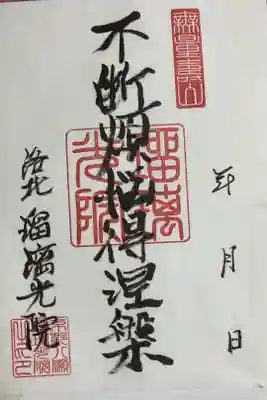 無量壽山
年月日
不断煩悩得涅槃
瑠璃光院
洛北 瑠璃光院